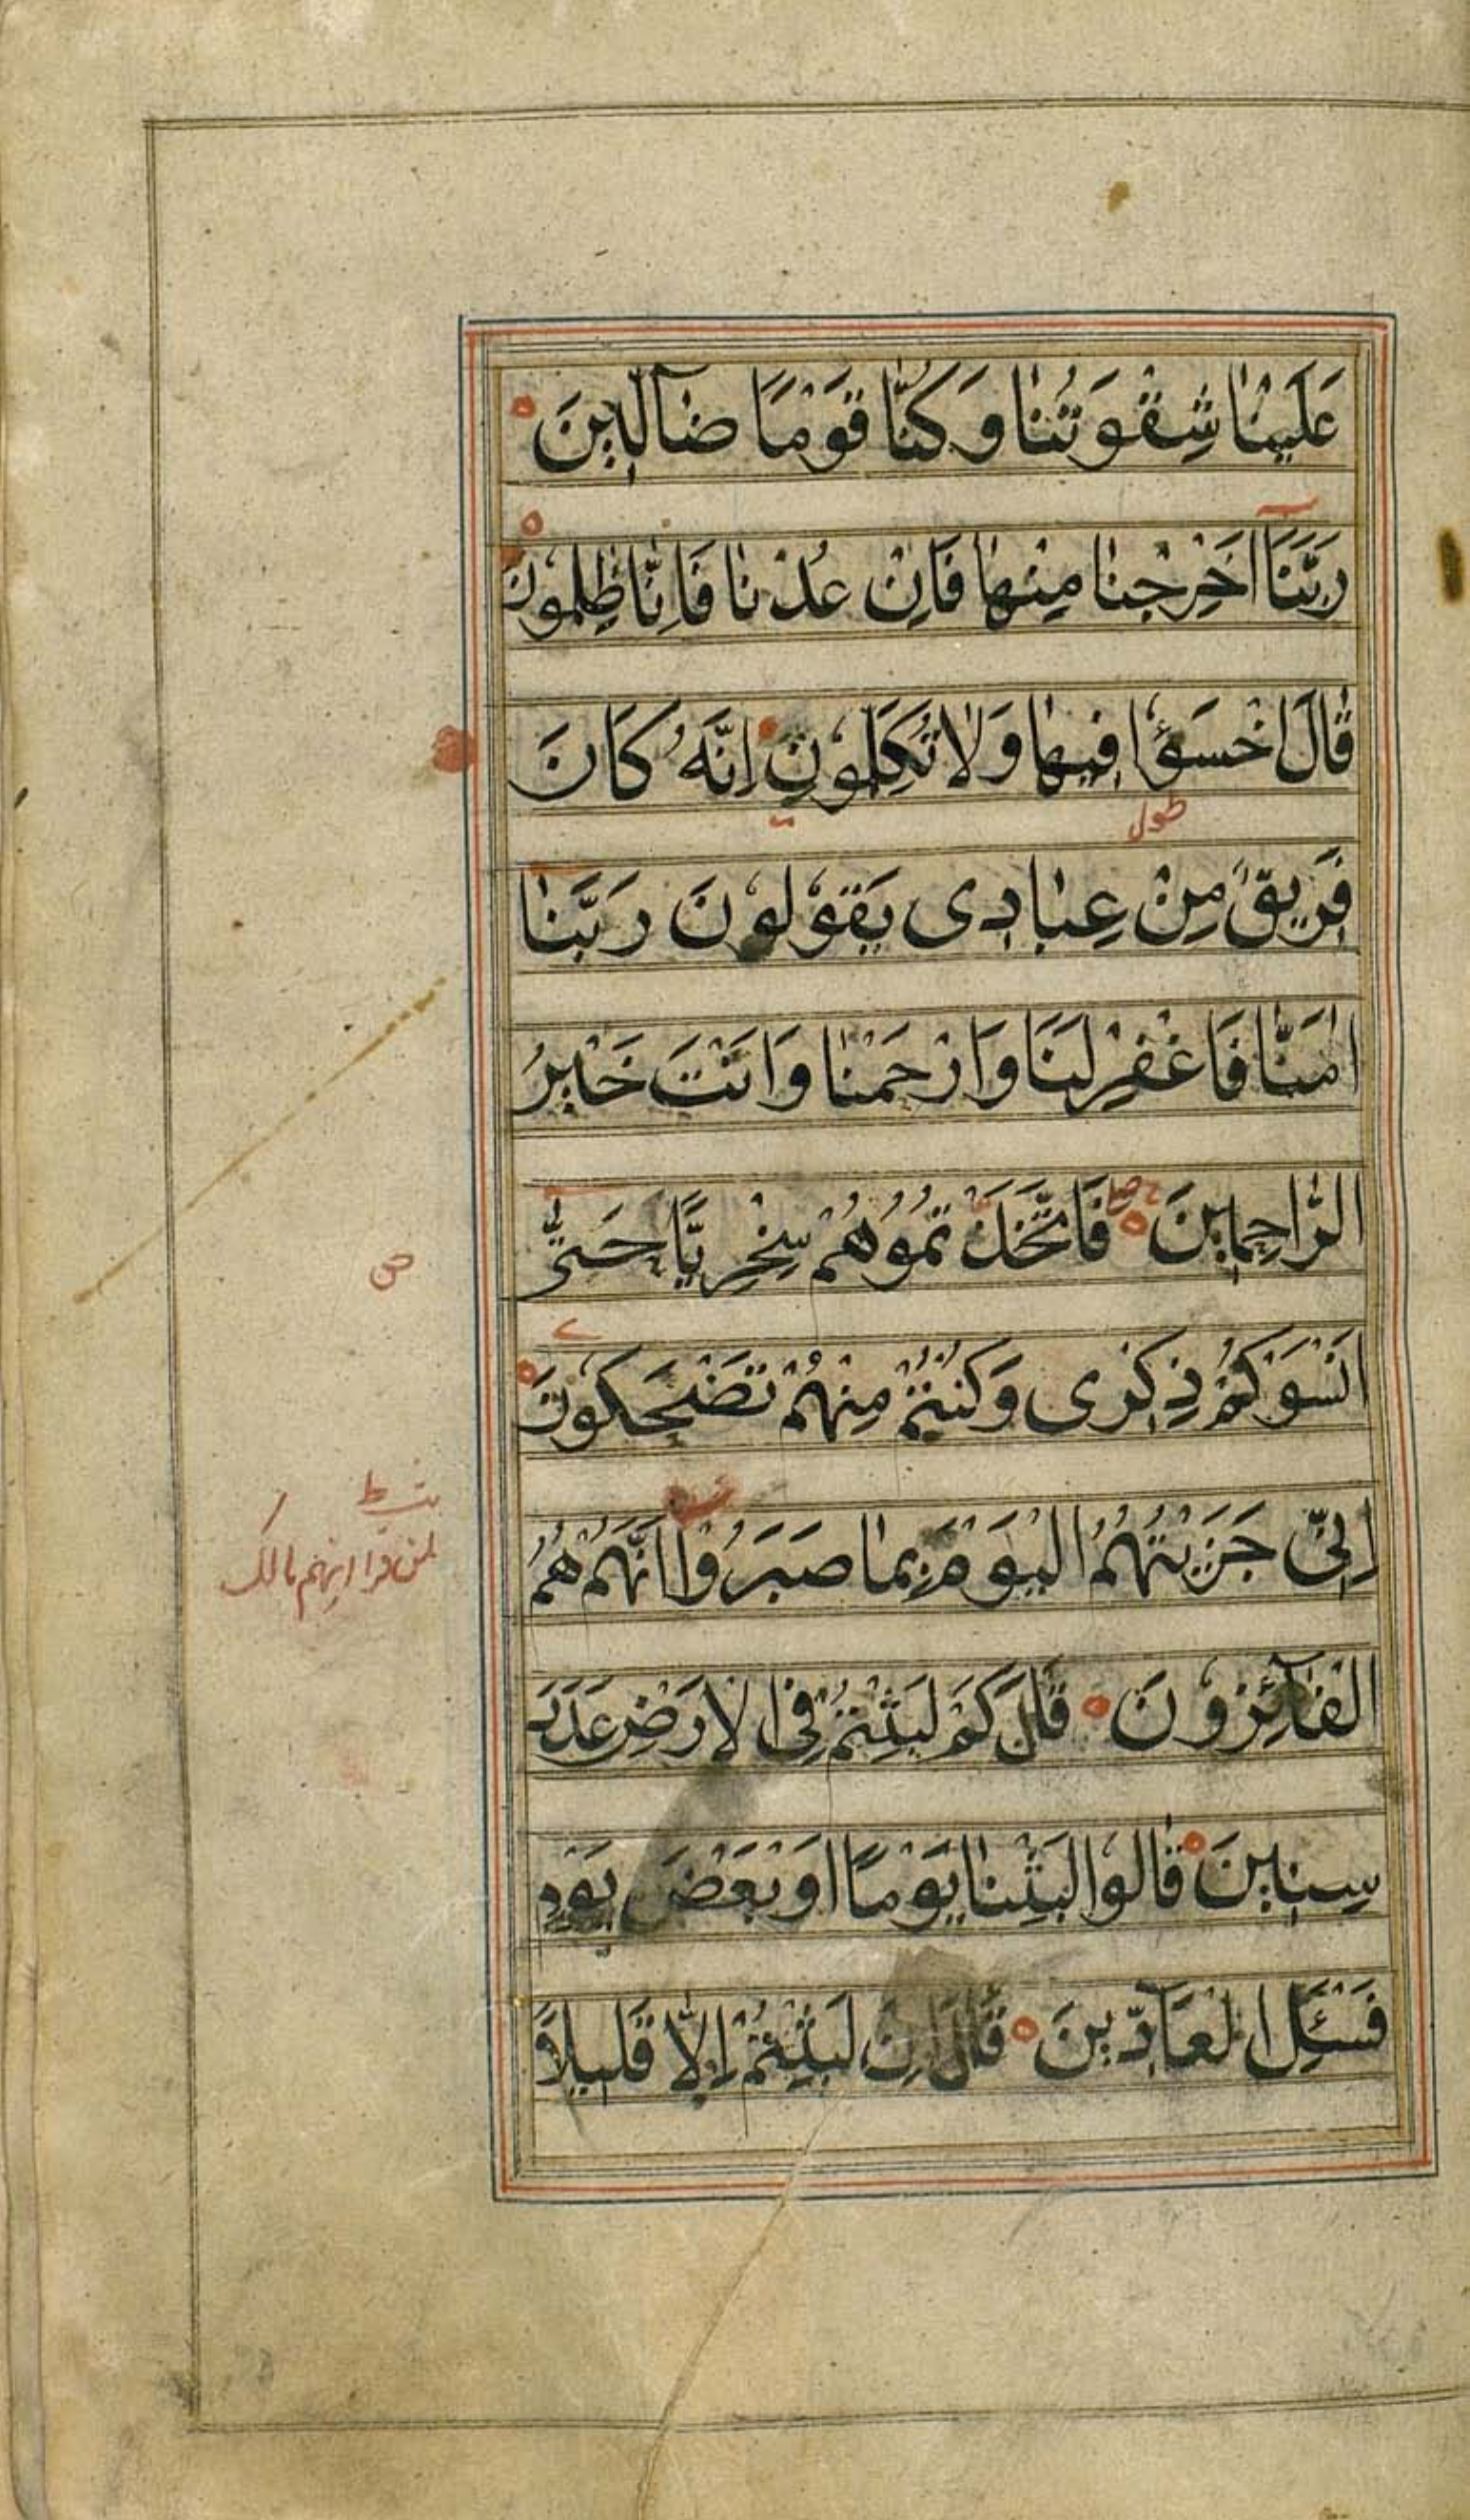 عَلَيْنَا شِقْوَتُنَا وَكُنَّا قَوْمًا ضَآلِّينَ
رَبَّنَا اَخْرِجْنَا مِنْهَا فَاِنْ عُدْنَا فَاِنَّا ظٰلِمُونَ
قَالَ اخْسَؤُا فِيهَا وَلَا تُكَلِّمُونِ اِنَّهُ كَانَ
طول
فَرِيقٌ مِنْ عِبَادِى يَقُولُونَ رَبَّنَا
اٰمَنَّا فَاغْفِرْ لَنَا وَارْحَمْنَا وَاَنْتَ خَيْرُ
الرَّاحِمِينَ فَاتَّخَذْتُمُوهُمْ سِخْرِيًّا حَتّٰى
ص
اَنْسَوْكُمْ ذِكْرِى وَكُنْتُمْ مِنْهُمْ تَضْحَكُونَ
اِنِّى جَزَيْتُهُمُ الْيَوْمَ بِمَا صَبَرُوا اَنَّهُمْ هُمُ
لمن قرا انهم بالك
الْفَآئِزُونَ قَالَ كَمْ لَبِثْتُمْ فِى الْاَرْضِ عَدَدَ
سِنِينَ قَالُوا لَبِثْنَا يَوْمًا اَوْ بَعْضَ يَوْمٍ
فَسْئَلِ الْعَآدِّينَ قَالَ اِنْ لَبِثْتُمْ اِلَّا قَلِيلًا